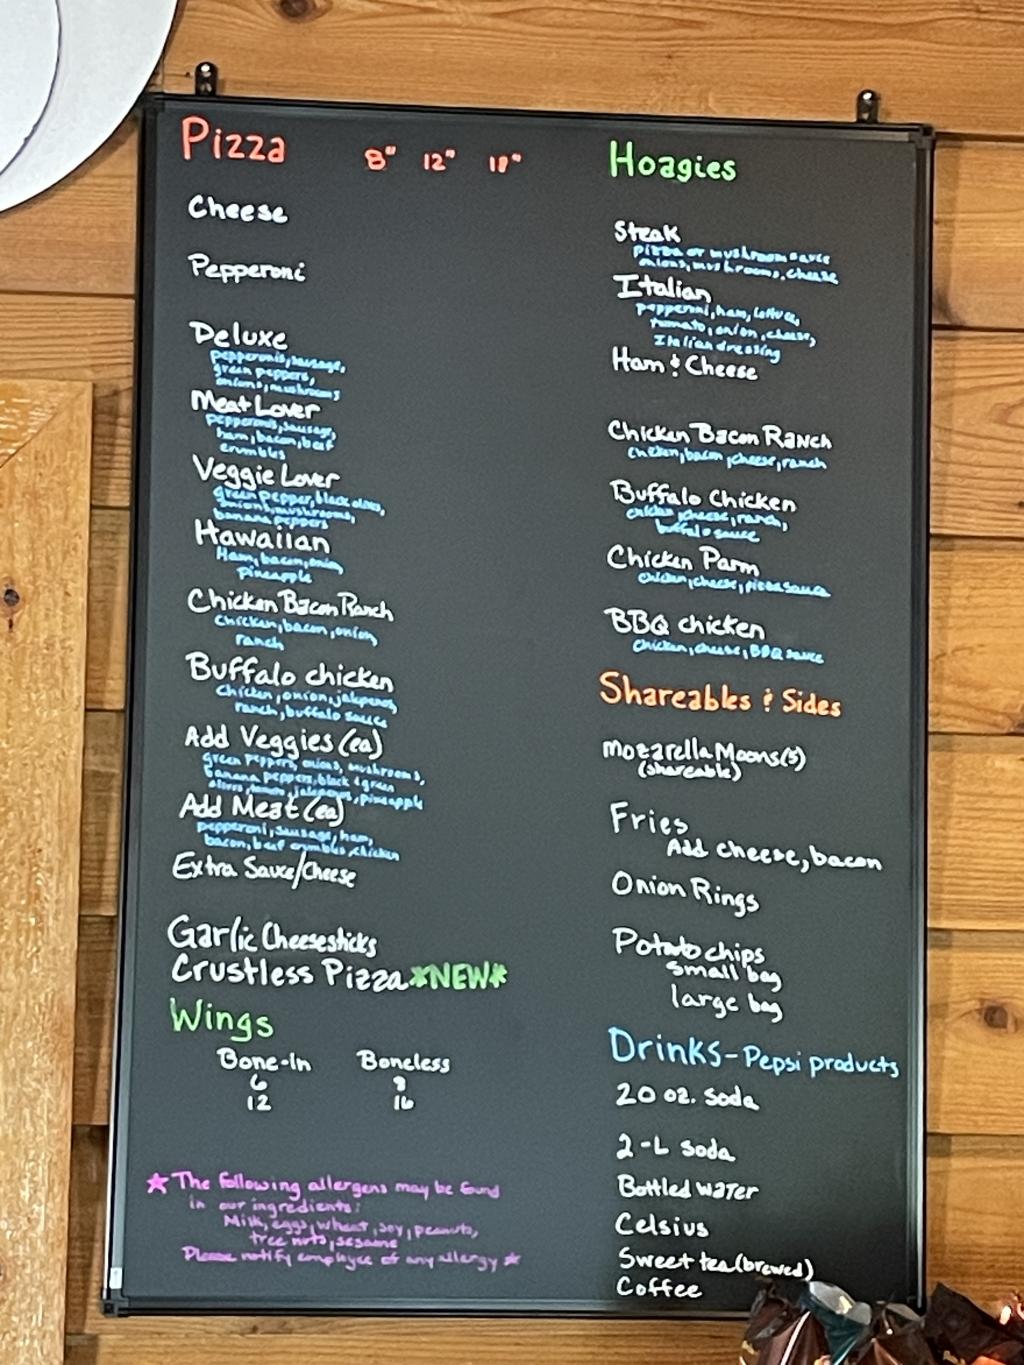 Pizza 8" 12" 18"
Cheese
Pepperoni
Deluxe
pepperonis, sausage,
green peppers,
onions, mushrooms
Meat Lover
pepperonis, sausage,
ham, bacon, beef
crumbles
Veggie Lover
green pepper, black olives,
onions, mushrooms,
banana peppers
Hawaiian
Ham, bacon, onion,
pineapple
Chicken Bacon Ranch
chicken, bacon, onion,
ranch
Buffalo chicken
chicken, onion, jalepenos,
ranch, buffalo sauce
Add Veggies (ea)
green peppers, onions, mushrooms,
banana peppers, black & green
olives, tomato, jalepenos, pineapple
Add Meat (ea)
pepperoni, sausage, ham,
bacon, beef crumbles, chicken
Extra Sauce/Cheese
Garlic Cheesesticks
Crustless Pizza *NEW*
Wings
Bone-In Boneless
6 8
12 16
★ The following allergens may be found
in our ingredients:
Milk, eggs, wheat, soy, peanuts,
tree nuts, sesame
Please notify employee of any allergy ★
Hoagies
Steak
pizza or mushroom sauce
onions, mushrooms, cheese
Italian
pepperoni, ham, lettuce,
tomato, onion, cheese,
Italian dressing
Ham & Cheese
Chicken Bacon Ranch
chicken, bacon, cheese, ranch
Buffalo Chicken
chicken, cheese, ranch,
buffalo sauce
Chicken Parm
chicken, cheese, pizza sauce
BBQ chicken
chicken, cheese, BBQ sauce
Shareables & Sides
Mozarella Moons(5)
(shareable)
Fries
Add cheese, bacon
Onion Rings
Potato chips
small bag
large bag
Drinks - Pepsi products
20 oz. soda
2-L soda
Bottled water
Celsius
Sweet tea (brewed)
Coffee